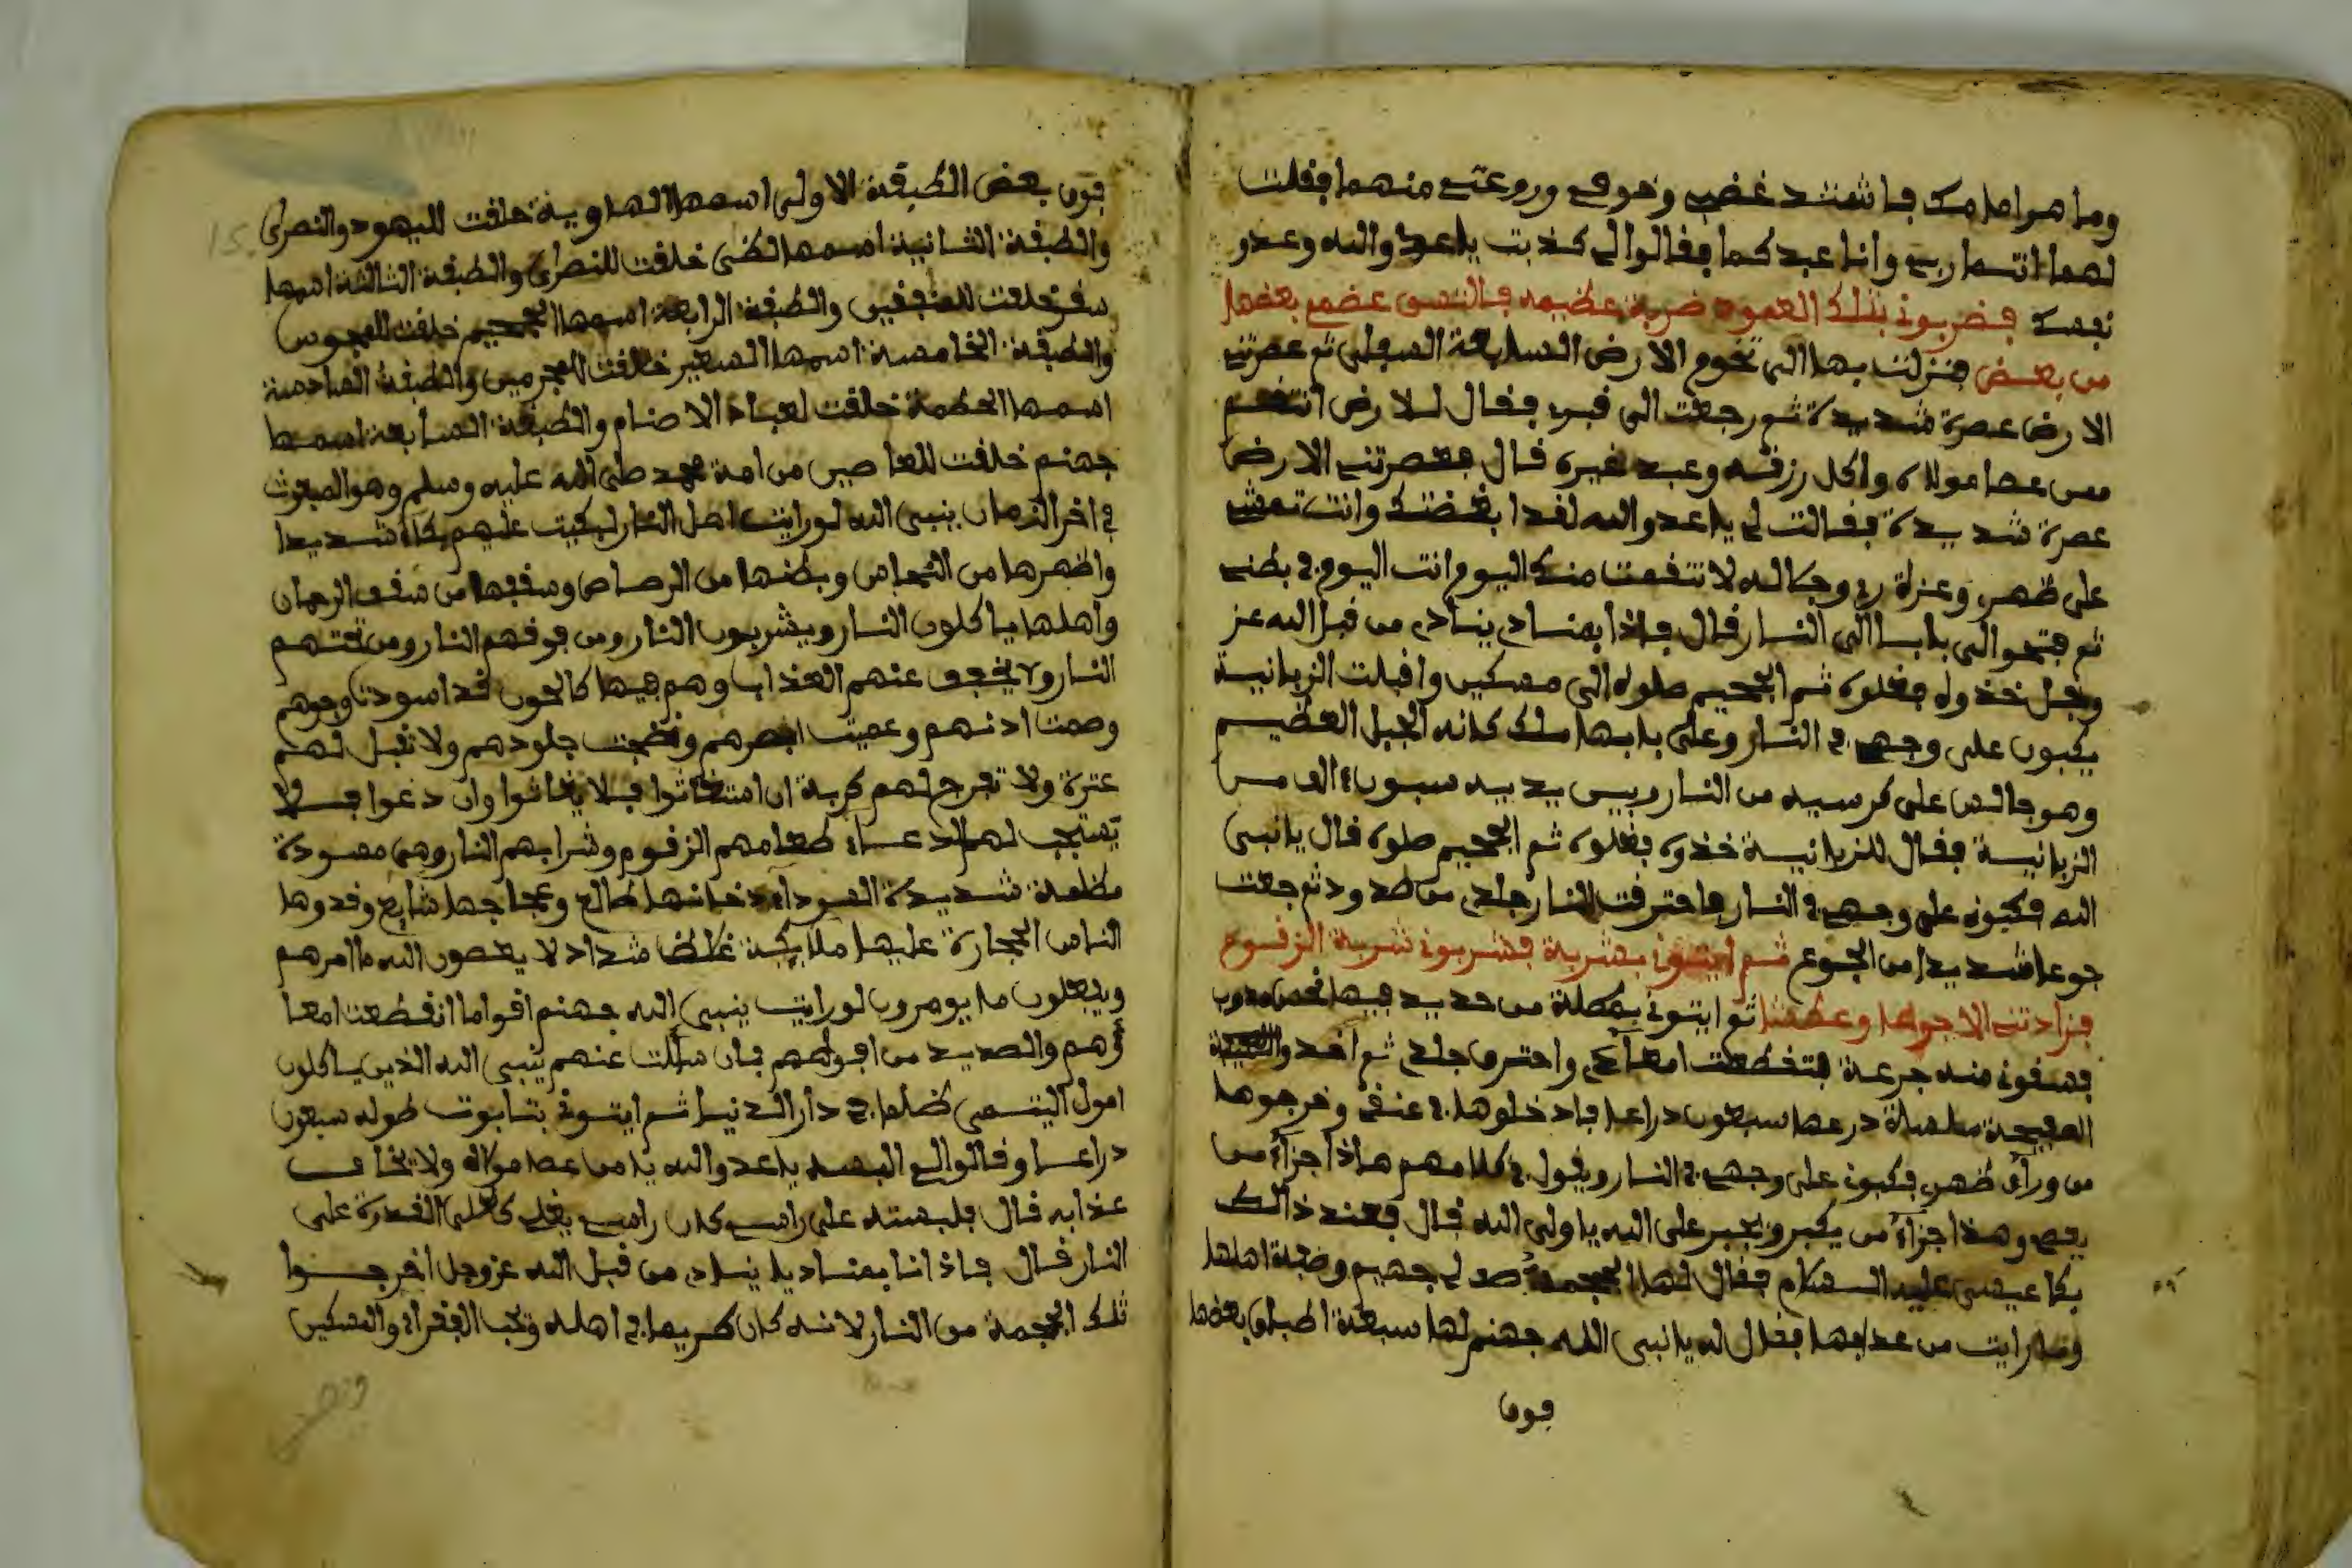 وما هو امامك فاشتد غضبي وخوفي وروعتي منهما فقلت
لهما انتما ربي وانا عبدكما فقالوا لي كذبت يا عدوا الله وعدو
نفسك فضربوني بتلك العمود ضربة عظيمه فالتس عضمي بعضها
من بعض فنزلت بها الى تخوم الارض السابعة السفلى ثم عصرتني
الارض عصرة شديدة ثم رجعت الى قبري فقال للارض انتقم
ممن عصا مولاه واكل رزقه وعبد غيره قال فعصرتني الارض
عصرة شديدة فقالت لي يا عدو الله لقد ابغضتك وانت تمشي
على ظهري وعزة ربي وجلاله لانتقمت منك اليوم انت اليوم في بطني
ثم فتحوا الى بابا الى النار قال فاذا بمناد ينادي من قبل الله عز
وجل خذوه فغلوه ثم الجحيم صلوه الى مسكين واقبلت الزبانية
يكبون على وجهي في النار وعلى بابها ملك كانه الجبل العظيم
وهو جالس على كرسيه من النار وبين يديه سبعون الف من
الزبانية فقال للزبانية خذوه فغلوه ثم الجحيم صلوه قال يا نبي
الله فكبوني على وجهي في النار فاحترقت النار جلدي من صدود ثم جعت
جوعا شديدا من الجوع ثم ايتوني بشربة فشربوني شربة الزقوم
فزادتني الا جوعا وعطشا ثم ايتوني بعطلة من حديد فيها نحاس مذوب
فسقوني منه جرعة فتقطعت امعآءي واحترق جلدي ثم اخذوا
القبيحة سلسلة درعها سبعون دراعا فادخلوها في عنقي وخرجوها
من ورآء ظهري فكبوني على وجهي في النار ويقول في كلامهم هاذا جزآء من
يعصي وهذا جزآء من يكبر ويجبر على الله يا ولي الله قال فعند ذالك
بكا عيسى عليه السلام فقال لها الجمجمة صد لي جهنم وصفة اهلها
وما رايت من عذابها فقال له يا نبي الله جهنم لها سبعة اطباق بعضها
فوق
فوق بعض الطبقة الاولى اسمها الهاوية خلقت لليهود والنصرى
والطبقة الثانية اسمها لظى خلقت للنصرى والطبقة الثالثة اسمها
سقر خلقت للمنفقين والطبقة الرابعة اسمها الجحيم خلقت للمجوس
والطبقة الخامسة اسمها السعير خلقت للمجرمين والطبقة السادسة
اسمها الحطمة خلقت لعباد الاصنام والطبقة السابعة اسمها
جهنم خلقت للعاصين من امة محمد صلى الله عليه وسلم وهو المبعوث
في اخر الزمان ينبي الله لو رايت اهل النار لبكيت عليهم بكاء شديدا
واظهرها من النحاس وبطنها من الرصاص وسقفها من سقف الرحمان
واهلها ياكلون النار ويشربون النار ومن فوقهم النار ومن تحتهم
النار ولا يخفف عنهم العذاب وهم فيها كالحون قد اسودت وجوههم
وصمت اذنهم وعميت ابصرهم ونضجت جلودهم ولا تقبل لهم
عترة ولا تفرج لهم كربة ان استغاثوا فلا يغاثوا وان دعوا فلا
يستجب لهم الدعاء طعامهم الزقوم وشرابهم النار وهي مسودة
مظلمة شديدة السواد دخانها طالع وعجاجها شايع وقدوها
الناس الحجارة عليها ملايكة غلاظ شداد لا يعصون الله ما امرهم
ويفعلون ما يومرون لو رايت ينبي الله جهنم اقواما انقطعت امعا
ؤهم والصديد من افواههم فان سالت عنهم ينبي الله الذين ياكلون
امول اليتمى ظلما في دار الدنيا ثم ايتوني بتابوت طوله سبعون
دراعا وقالوا لي البسه يا عدو الله يا من عصا مولاه ولا يخاف
عذابه قال فلبسته على راسي كان راسي يغلي كاغلى القدرة على
النار قال فاذا انا بمناد يا ينادي من قبل الله عز وجل اخرجوا
تلك الجمجمة من النار لانه كان كريما في اهله وتحب الفقراء والمسكين